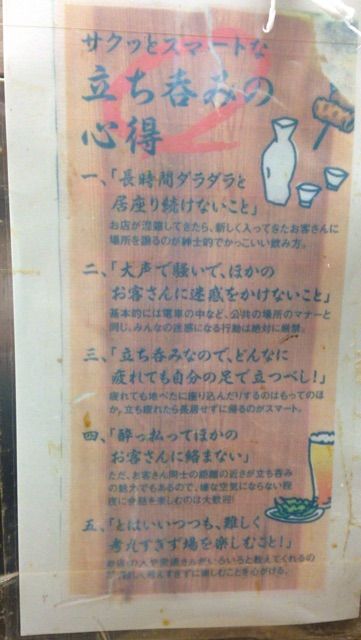 サクッとスマートな
立ち呑みの
心得
一、「長時間ダラダラと
居座り続けないこと」
お店が混雑してきたら、新しく入ってきたお客さんに
場所を譲るのが紳士的でかっこいい飲み方。
二、「大声で騒いで、ほかの
お客さんに迷惑をかけないこと」
基本的には電車の中など、公共の場所のマナーと
同じ。みんなの迷惑になる行動は絶対に厳禁。
三、「立ち呑みなので、どんなに
疲れても自分の足で立つべし!」
疲れても地べたに座り込んだりするのはもってのほ
か。立ち疲れたら長居せずに帰るのがスマート。
四、「酔っ払ってほかの
お客さんに絡まない」
ただ、お客さん同士の距離の近さが立ち呑み
の魅力でもあるので、嫌な空気にならない程
度に会話を楽しむのは大歓迎!
五、「とはいいつつも、難しく
考えすぎず場を楽しむこと!」
お店の人や常連さんがいろいろと教えてくれるの
すぎずに楽しむことを心がける。